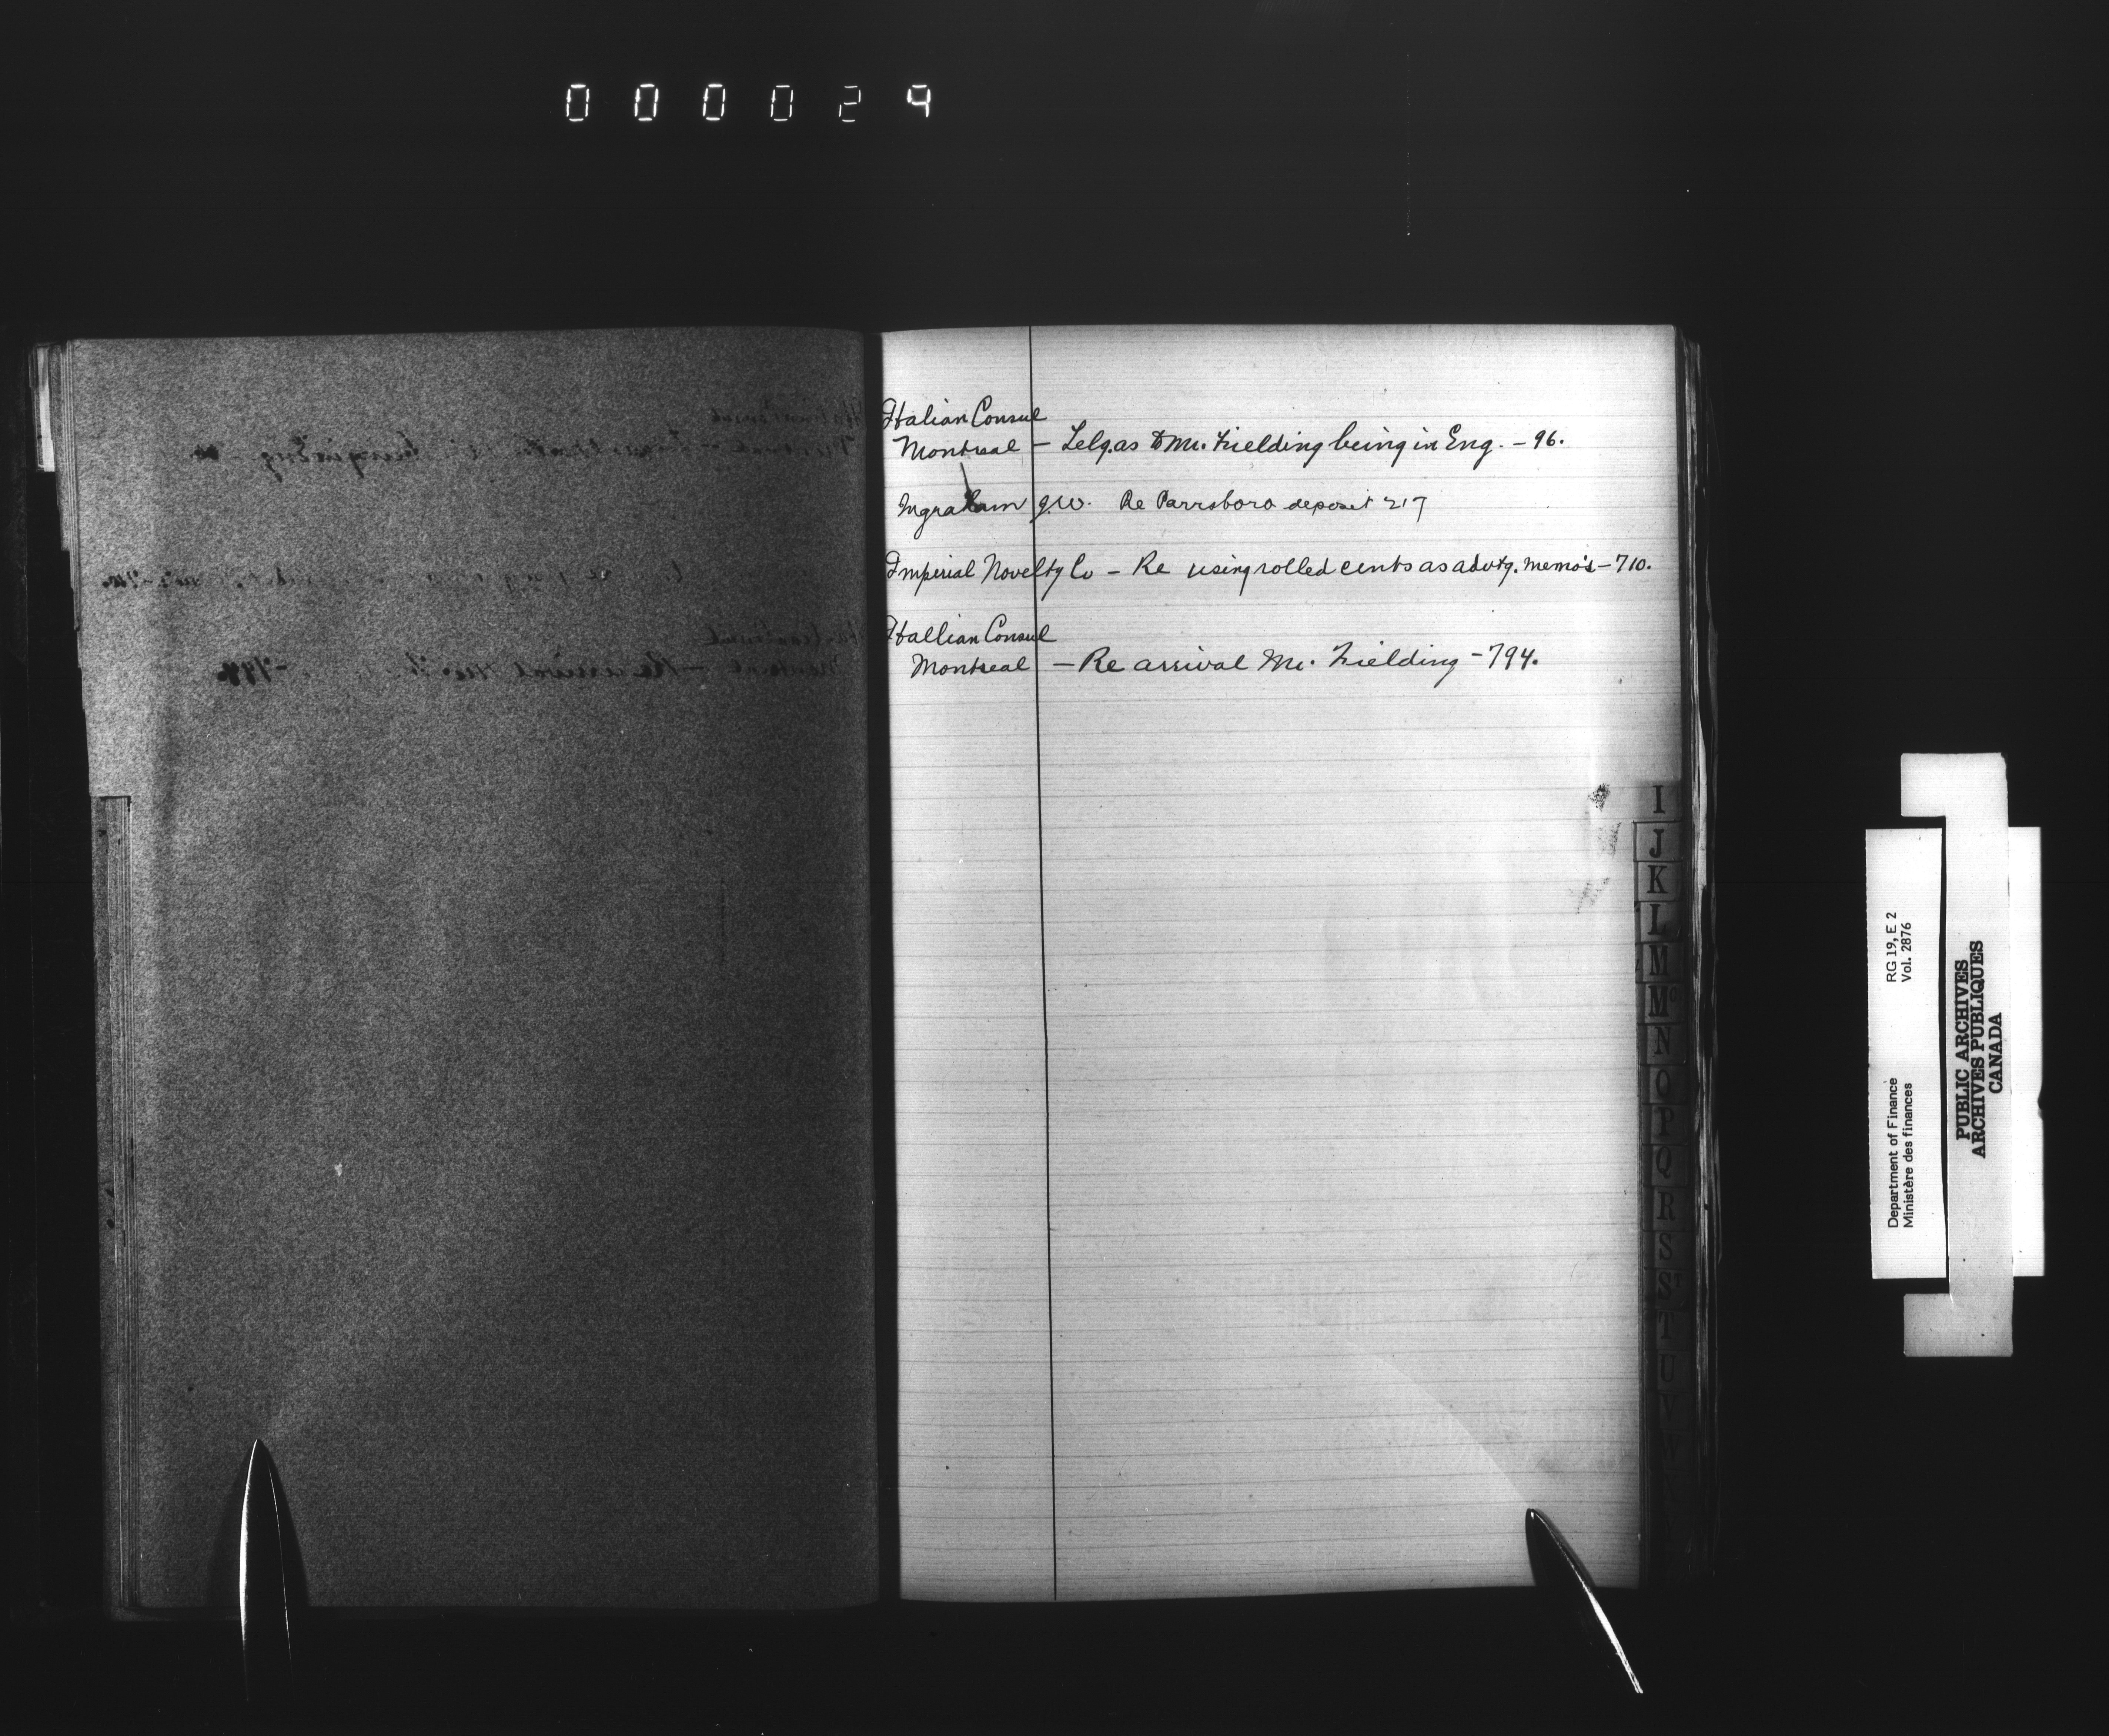 000029
Italian Consul
Montreal - Telg. as to Mr. Fielding being in Eng. - 96.
Ingraham J.W. Re Parrsboro deposit 217
Imperial Novelty Co - Re using rolled cents as advtg. memo's - 710.
Itallian Consul
Montreal - Re arrival Mr. Fielding - 794.
I
J
K
L
M
Mc
N
O
P
Q
R
S
St
T
U
V
W
Department of Finance RG 19, E 2
Ministère des finances Vol. 2876
PUBLIC ARCHIVES
ARCHIVES PUBLIQUES
CANADA